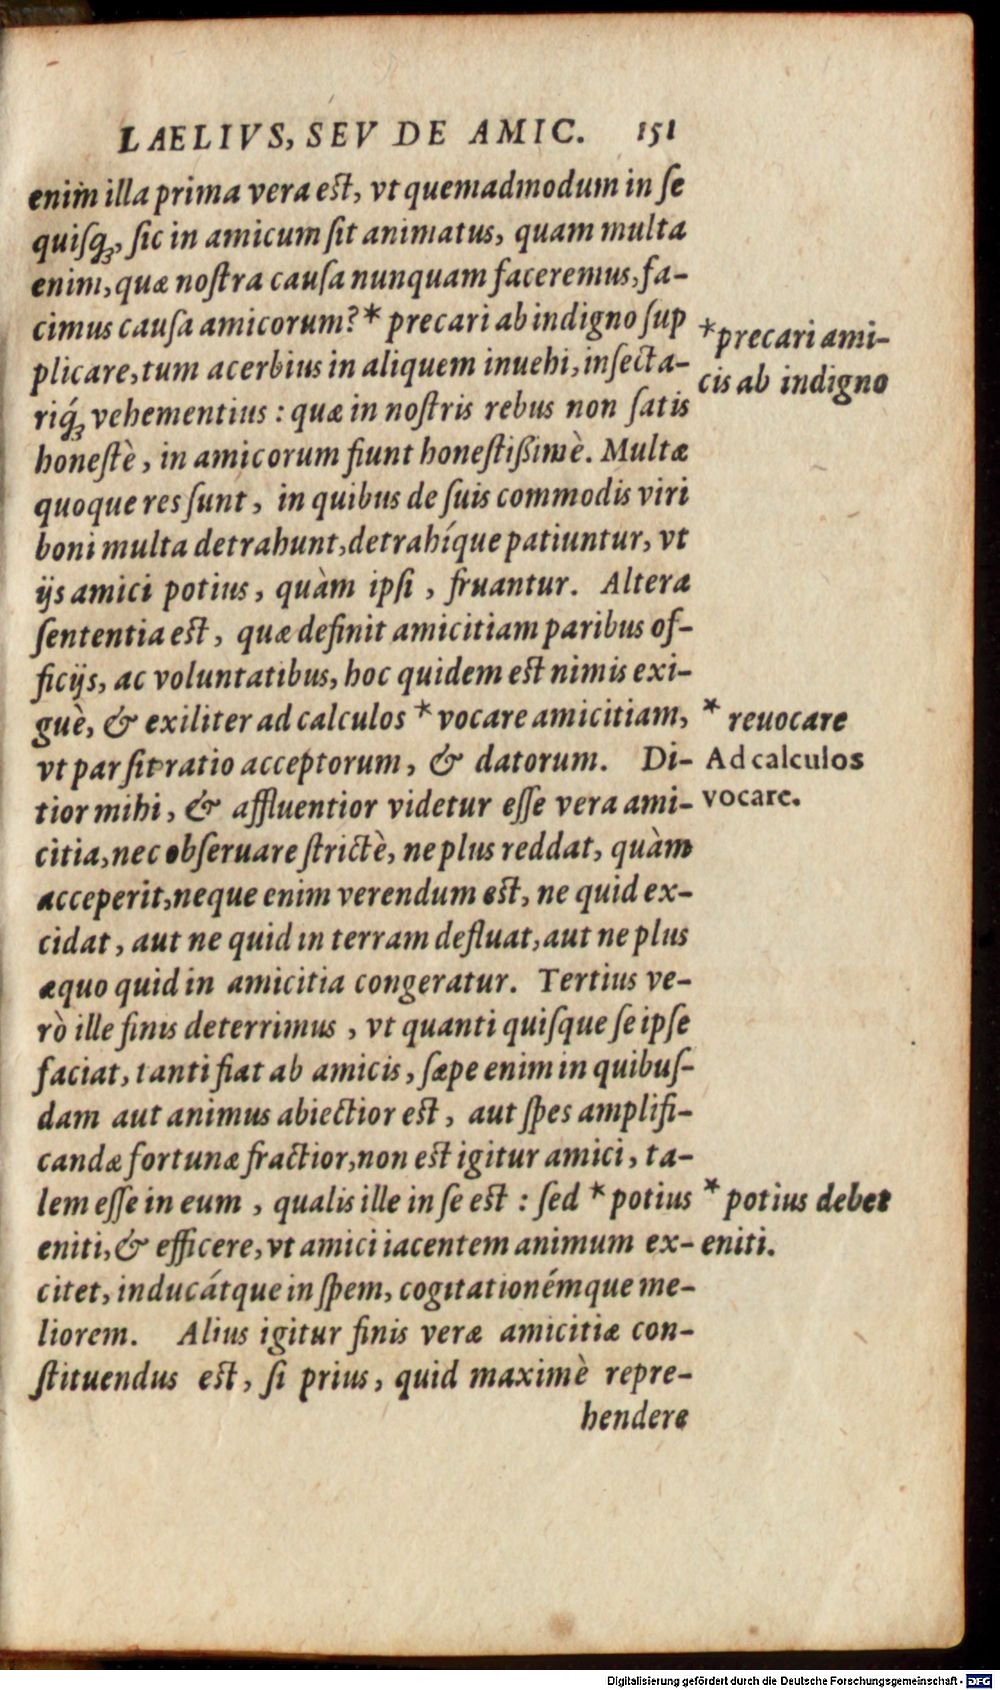 LAELIVS, SEV DE AMIC. 151
enim illa prima vera est, vt quemadmodum in se
quisq́ꝫ, sic in amicum sit animatus, quam multa
enim, quæ nostra causa nunquam faceremus, fa-
cimus causa amicorum? * precari ab indigno sup
plicare, tum acerbius in aliquem inuehi, insecta-
riq́ꝫ vehementius : quæ in nostris rebus non satis
honestè, in amicorum fiunt honestißimè. Multæ
quoque res sunt, in quibus de suis commodis viri
boni multa detrahunt, detrahíque patiuntur, vt
ijs amici potius, quàm ipsi, fruantur. Altera
sententia est, quæ definit amicitiam paribus of-
ficijs, ac voluntatibus, hoc quidem est nimis exi-
guè, & exiliter ad calculos * vocare amicitiam,
vt par sit ratio acceptorum, & datorum. Di-
tior mihi, & affluentior videtur esse vera ami-
citia, nec obseruare strictè, ne plus reddat, quàm
acceperit, neque enim verendum est, ne quid ex-
cidat, aut ne quid in terram defluat, aut ne plus
æquo quid in amicitia congeratur. Tertius ve-
rò ille finis deterrimus, vt quanti quisque se ipse
faciat, tanti fiat ab amicis, sæpe enim in quibus-
dam aut animus abiectior est, aut spes amplifi-
candæ fortunæ fractior, non est igitur amici, ta-
lem esse in eum, qualis ille in se est : sed * potius
eniti, & efficere, vt amici iacentem animum ex-
citet, inducátque in spem, cogitationémque me-
liorem. Alius igitur finis veræ amicitiæ con-
stituendus est, si prius, quid maximè repre-
hendere
* precari ami-
cis ab indigno
* reuocare
Ad calculos
vocare.
* potius debet
eniti.
Digitalisierung gefördert durch die Deutsche Forschungsgemeinschaft - DFG